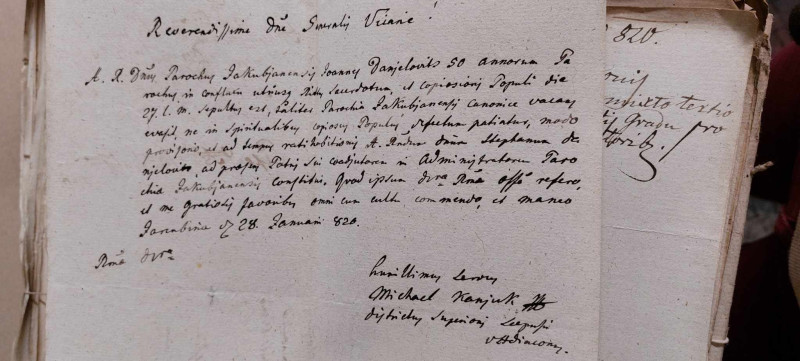 Reverendissime Dne Generalis Vicarie!
A. R. Dnus Parochus Jakubjanensis Joannes Danjelovits 50 annorum Pa
rochus in confluxu utriusq Ritus Sacerdotum, et copiosioris Populi die
27 l. m. sepultus est, taliter Parochia Jakubjanensis canonice vacans
evasit, ne in Spiritualibus copiosus Populus defectum patiatur, modo
provisorio, et ad tempus ratihabitionis A. Rndum Dnum Stephanum Da
njelovits, ad præsens Patris sui coadjutorem in Administratorem Paro
chiæ Jakubjanensis constitui. Quod ipsum Dvræ Rmæ offo refero,
et me gratiosis favoribus omni cum cultu commendo, et maneo
Jarembina 28. Januarii 820.
Rmæ Dvræ
humillimus servus
Michael Kanjuk
districtus Superioris Scepusii
V Adiaconus.
820.
tertio
gradu pro